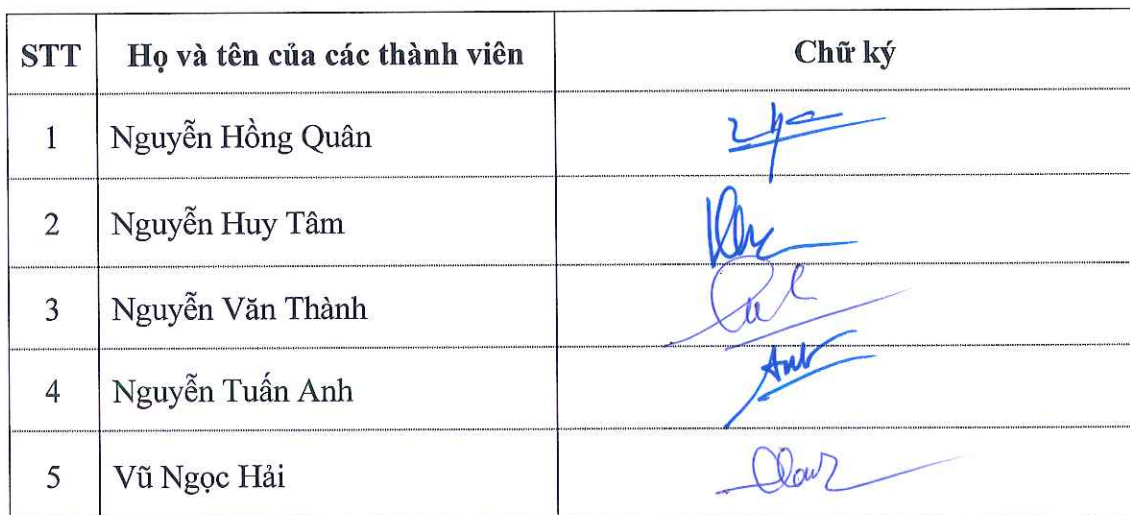 STT Họ và tên của các thành viên Chữ ký
1 Nguyễn Hồng Quân
2 Nguyễn Huy Tâm
3 Nguyễn Văn Thành
4 Nguyễn Tuấn Anh
5 Vũ Ngọc Hải